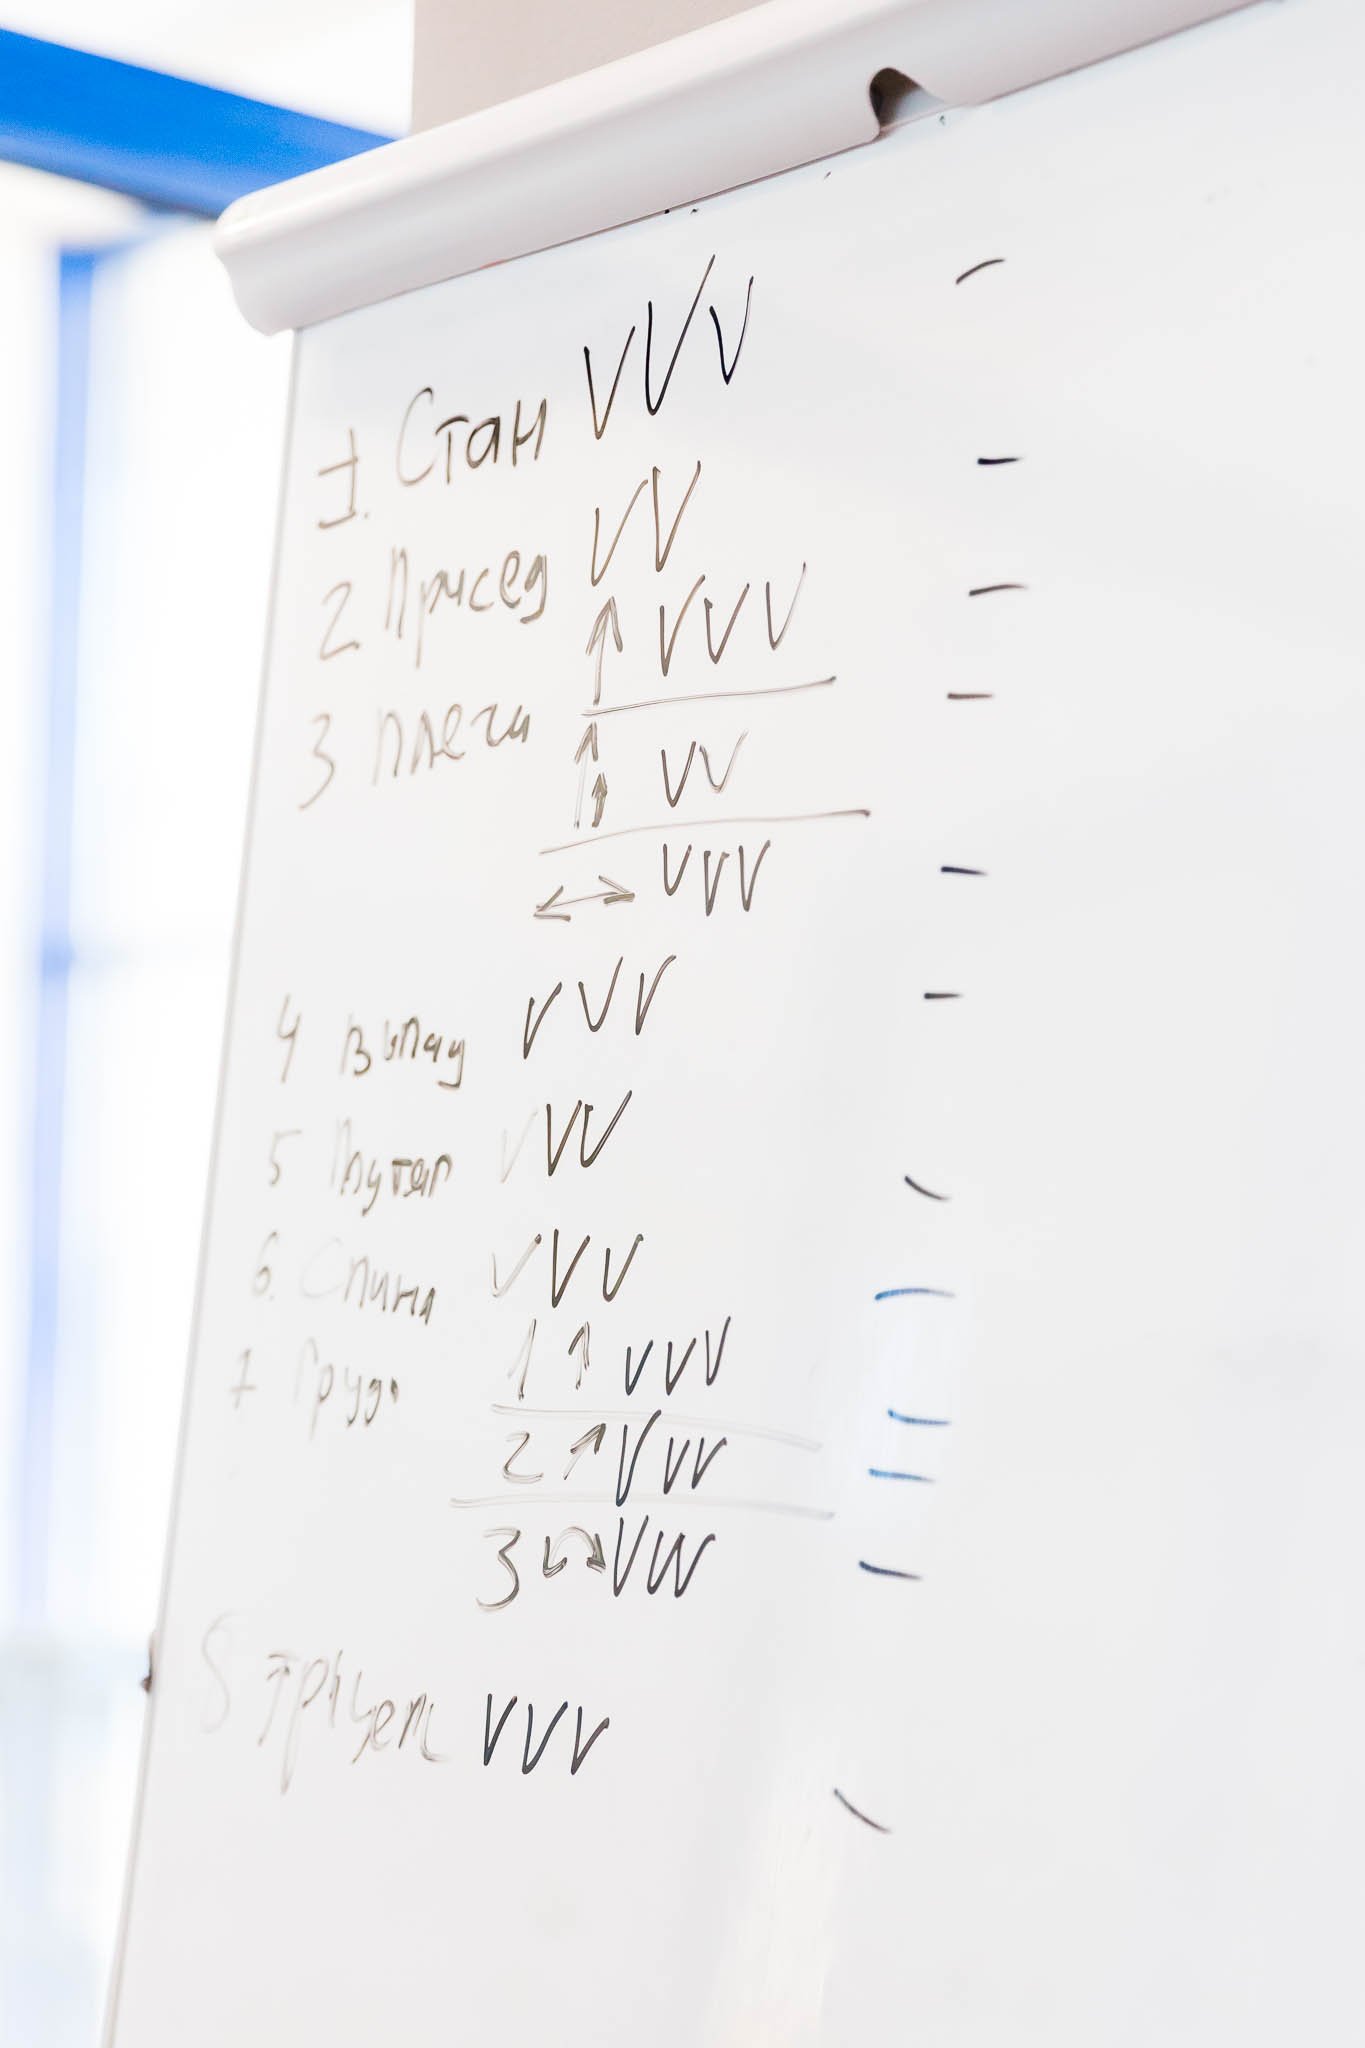 1. Стан VVV
2. Присед VV
↑ VVV
3 Плечи
↑↑ VV
↔ VVV
4 Выпад VVV
5 VVV
6. Спина VVV
7 Грудь 1 ↑ VVV
2 ↑ VVV
3 VVV
8 Трицепс VVV